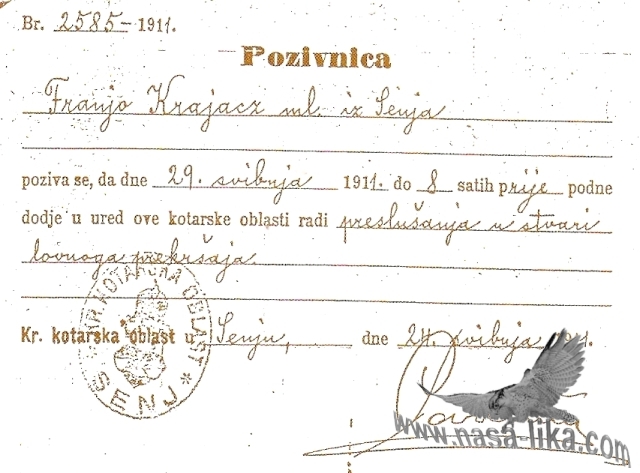 Br. 2585 - 1911.
Pozivnica
Franjo Krajacz ml. iz Senja
poziva se, da dne 29. svibnja 1911. do 8 satih prije podne
dodje u ured ove kotarske oblasti radi preslušanja u stvari
lovnoga prekršaja.
KOTARSKA OBLAST * SENJ *
Kr. kotarska oblast u Senju, dne 24. svibnja 1911.
www.nasa-lika.com